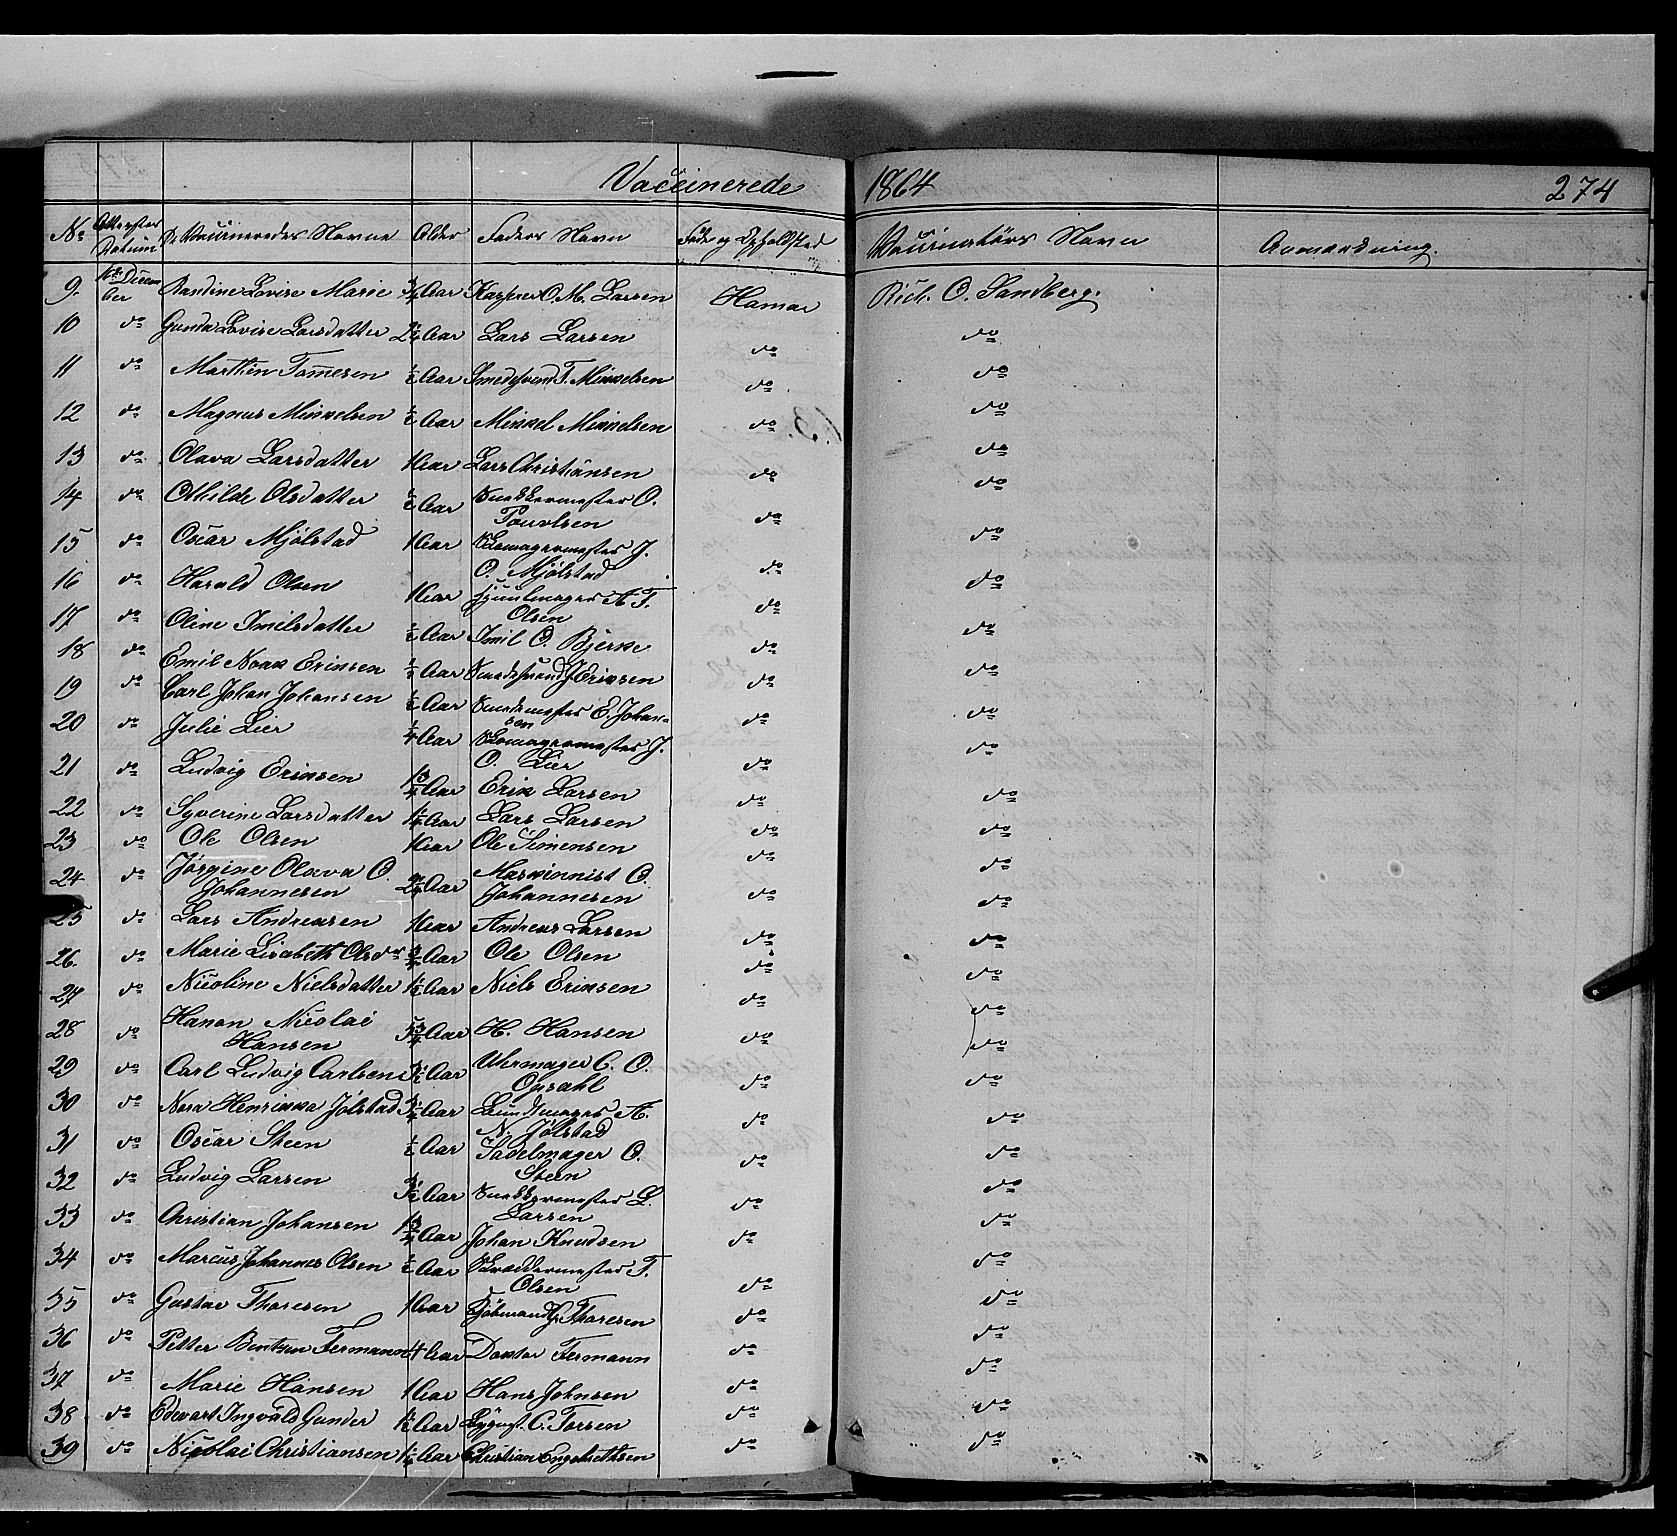 Vaccinerede 1864 274
No Attestens Datum De Vaccineredes Navne Alder Faders Navn Føde og Opholdsted Vaccinatørs Navn Anmærkning.
9. Decem-
ber Randine Lovise Marie 3/4 Aar Kasper O. M. Larsen Hamar Rich. O. Sandberg.
10 do Gunda Lovise Larsdatter Aar Lars Larsen do do
11 do Marthin Tomesen 1/2 Aar Smedsvend T. Mikkelsen do do
12 do Magnus Mikkelsen 1/2 Aar Mikkel Mikkelsen do do
13 do Olava Larsdatter 1 Aar Lars Christiansen do do
14 do Othilde Olsdatter 1/2 Aar Snedkermester O.
Poulsen do do
15 do Oscar Mjølstad 1 Aar Skomagermester J.
O. Mjølstad do do
16 do Harald Olsen 1 Aar Hjuulmager A. T.
Olsen do do
17 do Oline Emilsdatter 1/2 Aar Emil O. Bjerke do do
18 do Emil Noak Eriksen 1/2 Aar Smedsvend J. Eriksen do do
19 do Carl Johan Johansen 1/2 Aar Smedemester E. Johan-
sen do do
20 do Julie Lier 1/4 Aar Skomagermester J.
O. Lier do do
21 do Ludvig Eriksen 1 3/4 Aar Erik Larsen do do
22 do Syverine Larsdatter Aar Lars Larsen do do
23 do Ole Olsen 1 Aar Ole Simensen do do
24 do Jørgine Olava O.
Johannesen Aar Maskinnist O.
Johannesen do do
25 do Lars Andreasen 1 Aar Andreas Larsen do do
26. do Marie Lisabeth Olsdr 3/4 Aar Ole Olsen do do
27 do Nicoline Nielsdatter 1 1/2 Aar Niels Eriksen do do
28 do Hanan Nicolai
Hansen Aar H. Hansen do do
29 do Carl Ludvig Carlsen Aar Uhrmager C. O.
Opsahl do do
30 do Nora Henrikka Jølstad Aar Bundtmager A.
N. Jølstad do do
31 do Oscar Steen 1/2 Aar Sadelmager O.
Steen do do
32 do Ludvig Larsen 3 1/2 Aar Snedkermester L.
Larsen do do
33 do Christian Johansen 1 3/4 Aar Johan Knudsen do do
34 do Marcus Johannes Olsen 1/2 Aar Skræddermester T.
Olsen do do
35 do Gustav Thoresen 1 Aar Kjøbmand H. Thoresen do do
36 do Petter Bentzen Fermann 4 Aar Doktor Fermann do do
37 do Marie Hansen 1 Aar Hans Johnsen do do
38 do Edevart Ingvald Gunder 1 1/2 Aar Bygmst. C. Torsen do do
39 do Nicolai Christiansen Aar Christian Engebrethsen do do